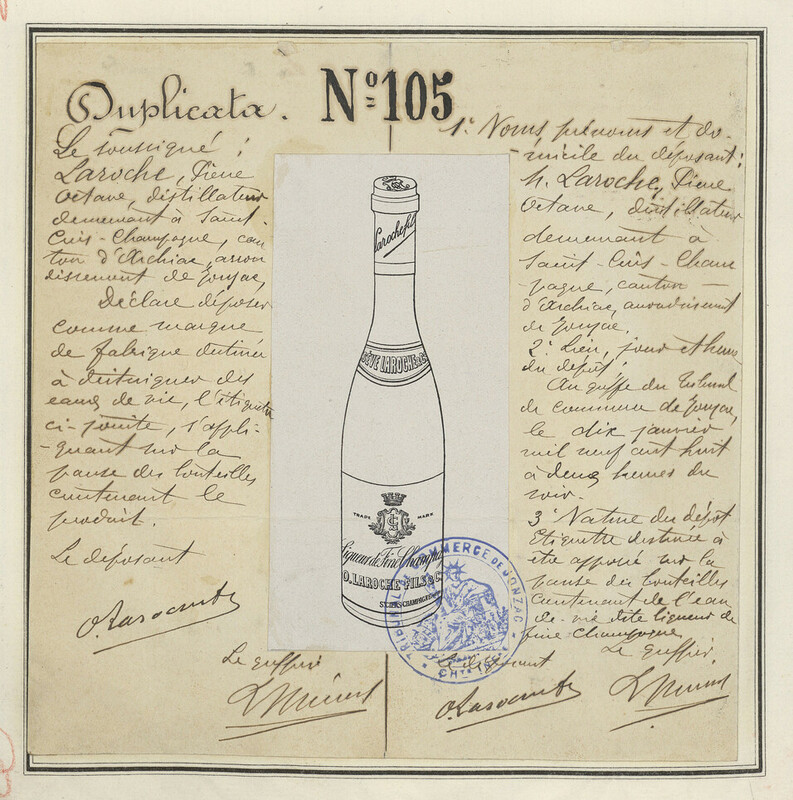 Duplicata.
Nº 105
Le soussigné :
Laroche, Pierre
Octave, distillateur
demeurant à Saint-
Ciers-Champagne, can
ton d'Archiac, arron
dissement de Jonzac,
Déclare déposer
comme marque
de fabrique destinée
à distinguer des
eaux de vie, l'étiquette
ci-jointe, s'appli-
-quant sur la
panse des bouteilles
contenant le
produit.
Le déposant
Le greffier
1º Noms prénoms et do-
-micile du déposant :
M. Laroche, Pierre
Octave, distillateur
demeurant à
Saint-Ciers-Cham
pagne, canton
d'Archiac, arrondissement
de Jonzac.
2º Lieu, jour et heure
du dépôt :
Au greffe du Tribunal
de commerce de Jonzac,
le dix janvier
mil neuf cent huit
à deux heures du
soir.
3º Nature du dépôt
Etiquette destinée à
être apposée sur la
panse des bouteilles
contenant de l'eau
de-vie dite liqueur de
fine-champagne
Le greffier
Le déposant
Laroche fils
LAROCHE
TRADE MARK
Liqueur de Fine Champagne
O. LAROCHE FILS & C
ST CIERS CHAMPAGNE
TRIBUNAL DE COMMERCE DE JONZAC